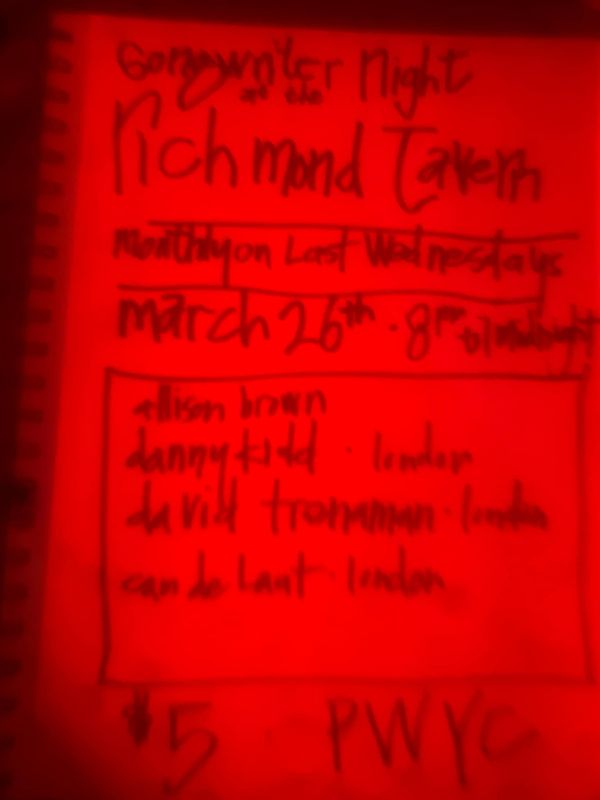 Songwriter Night
at the
Richmond Tavern
monthly on Last Wednesdays
march 26th · 8pm til midnight
allison brown
danny kidd · london
david tronaman · london
can de Laut · london
$5 PWYC